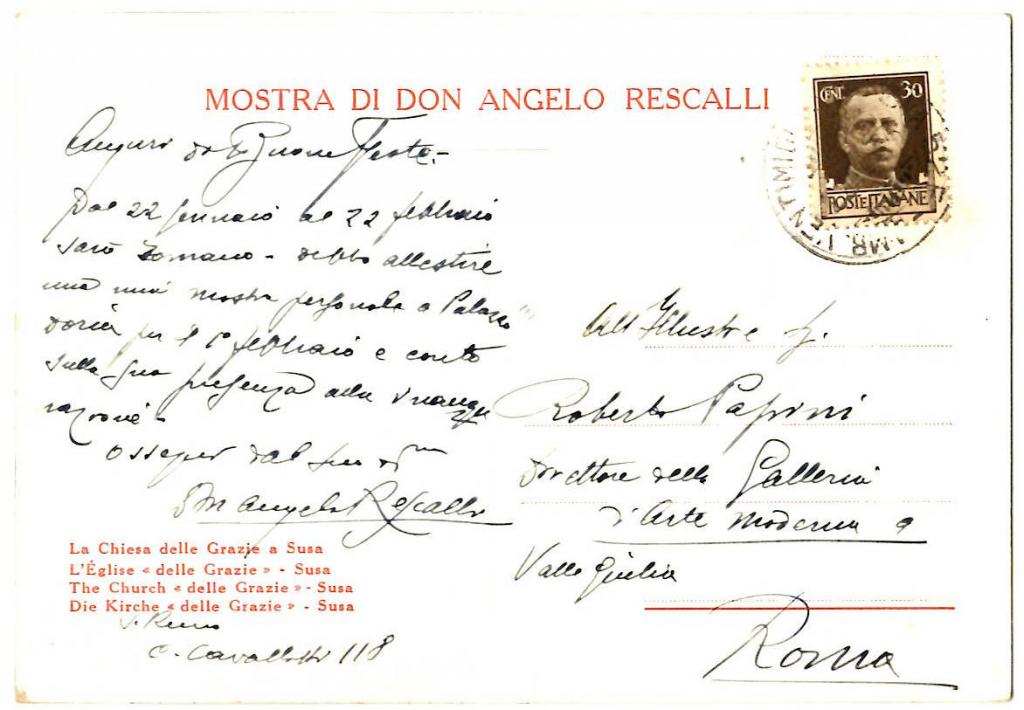 MOSTRA DI DON ANGELO RESCALLI
CENT. 30
POSTE ITALIANE
AMB. VENTIMIGL
Auguri di Buone Feste -
Dal 22 gennaio al 22 febbraio
sarò Romano - debbo allestire
una mia mostra personale a Palazzo
Doria per il 1° febbraio e conto
sulla Sua presenza alla inaugu
razione -
Ossequi dal suo
Don Angelo Rescalli
La Chiesa delle Grazie a Susa
L'Église « delle Grazie » - Susa
The Church « delle Grazie » - Susa
Die Kirche « delle Grazie » - Susa
S. Remo
C. Cavallotti 118
All'Illustre
Roberto Papini
Direttore della Galleria
d'Arte Moderna a
Valle Giulia
Roma